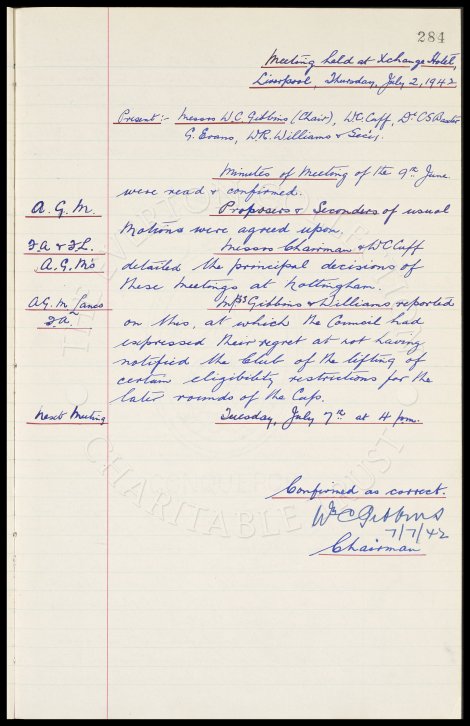 284
Meeting held at Xchange Hotel,
Liverpool, Thursday, July 2, 1942
Present:- Messrs W.C. Gibbins (Chair), W.C. Cuff, Dr C.S. Baxter
G. Evans, W.R. Williams & Sec'y.
Minutes of Meeting of the 9th June
were read & confirmed.
A.G.M. Proposers & Seconders of usual
Motions were agreed upon.
F.A & F.L. Messrs Chairman & W C Cuff
A.G.M's detailed the principal decisions of
these meetings at Nottingham.
A.G.M. Lancs Gibbins & Williams reported
F.A. on this, at which the Council had
expressed their regret at not having
notified the Club of the lifting of
certain eligibility restrictions for the
later rounds of the Cup.
Next Meeting Tuesday, July 7th at 4 p.m.
CHARITABLE TRUST
Confirmed as correct.
Wm C Gibbins
7/7/42
Chairman